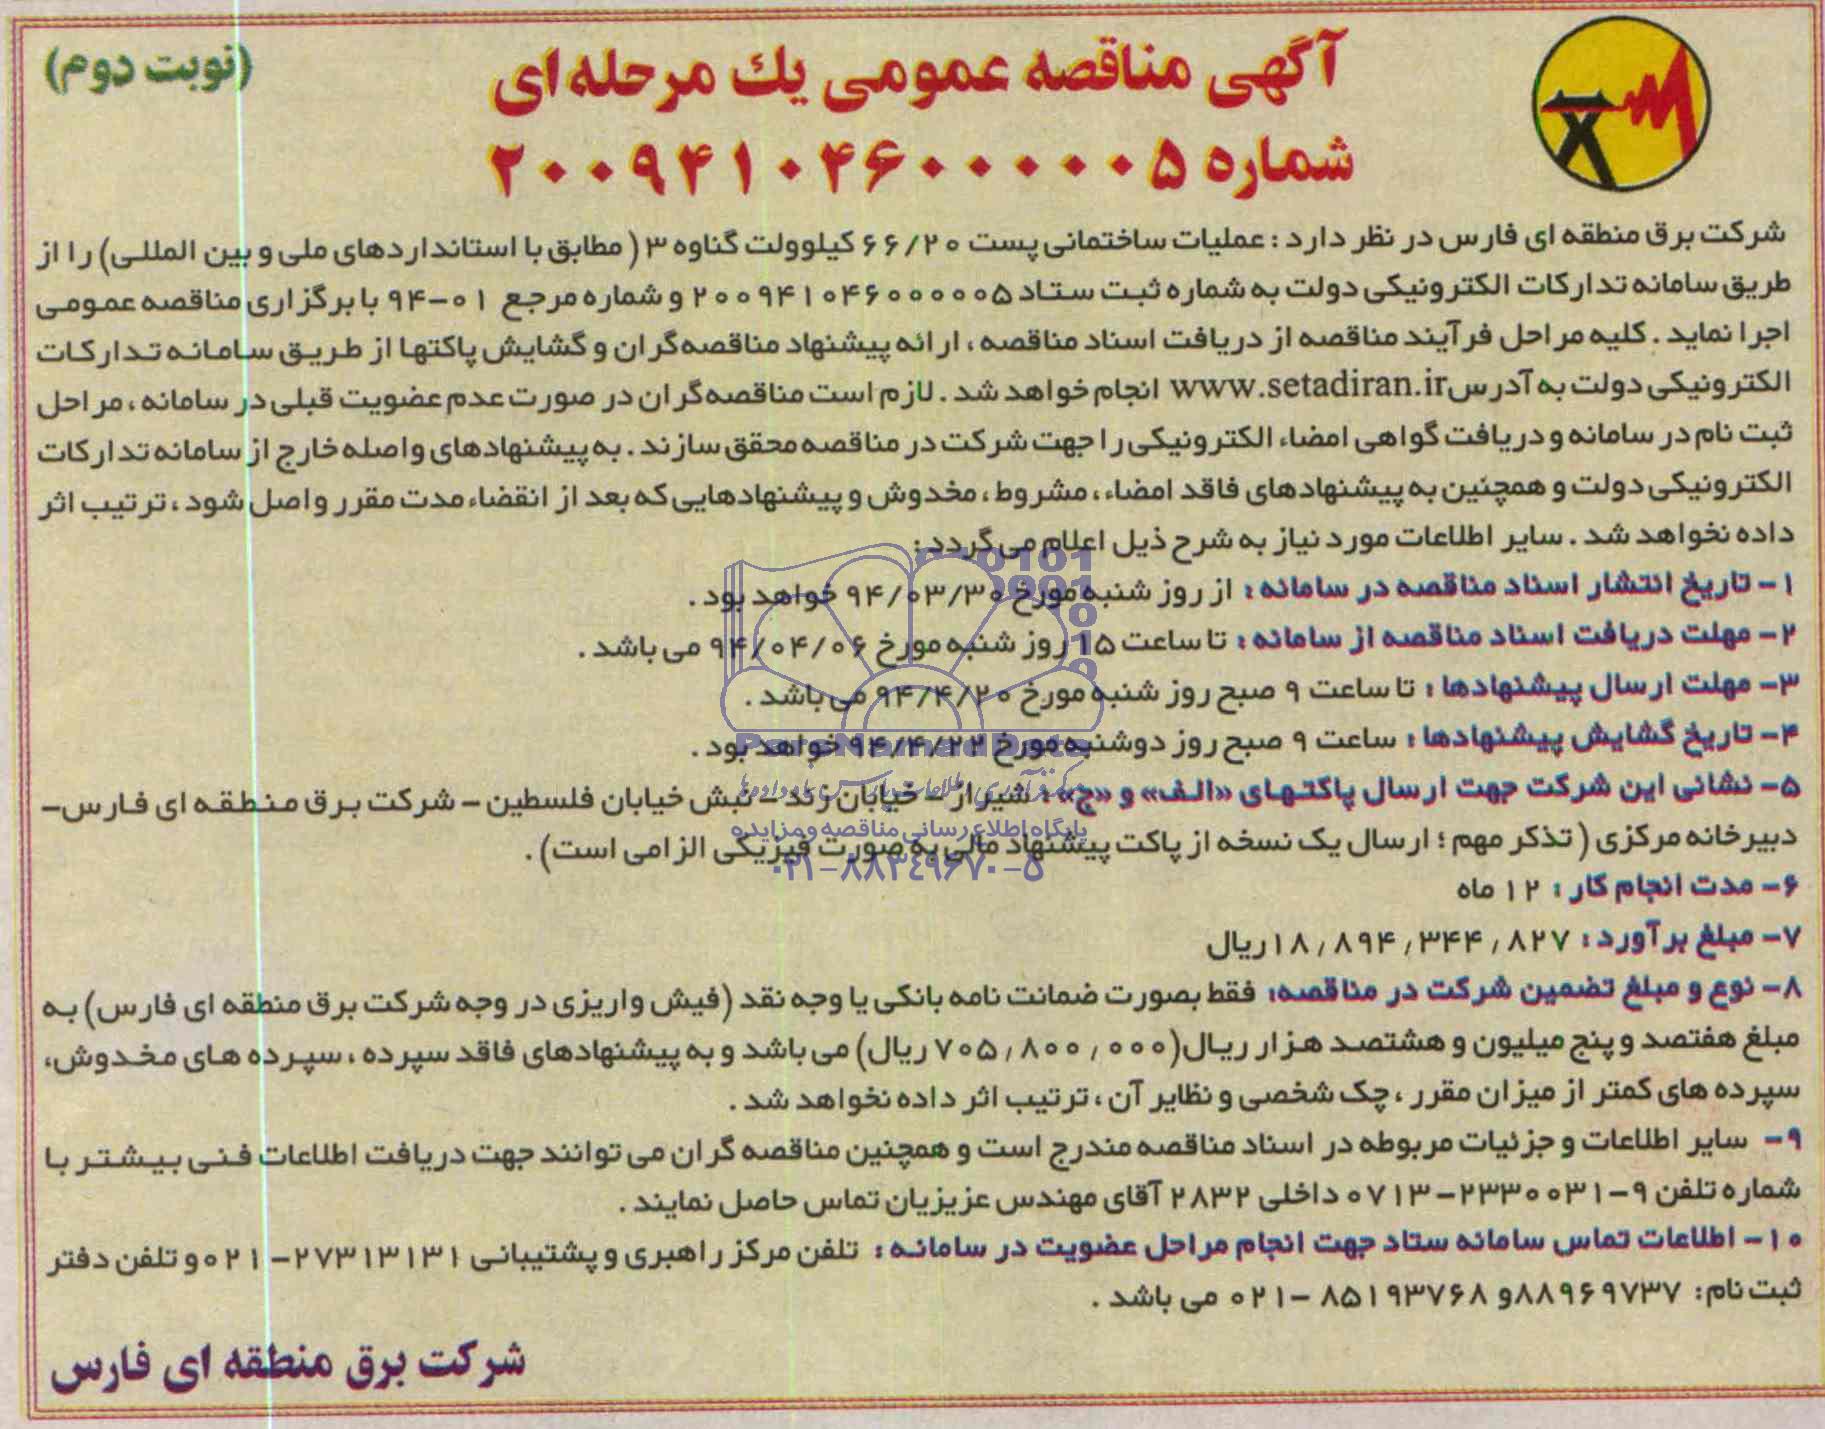 آگهی مناقصه عمومی یك مرحله ای
(نوبت دوم)
شماره ۲۰۰۹۴۱۰۴۶۰۰۰۰۰۵
شرکت برق منطقه ای فارس در نظر دارد : عملیات ساختمانی پست ۶۶/۲۰ کیلوولت گناوه ۳ ( مطابق با استانداردهای ملی و بین المللی) را از
طریق سامانه تدارکات الکترونیکی دولت به شماره ثبت ستاد ۲۰۰۹۴۱۰۴۶۰۰۰۰۰۵ و شماره مرجع ۰۱-۹۴ با برگزاری مناقصه عمومی
اجرا نماید . کلیه مراحل فرآیند مناقصه از دریافت اسناد مناقصه ، ارائه پیشنهاد مناقصه‌گران و گشایش پاکتها از طریق سامانه تدارکات
الکترونیکی دولت به آدرس www.setadiran.ir انجام خواهد شد . لازم است مناقصه‌گران در صورت عدم عضویت قبلی در سامانه ، مراحل
ثبت نام در سامانه و دریافت گواهی امضاء الکترونیکی را جهت شرکت در مناقصه محقق سازند . به پیشنهادهای واصله خارج از سامانه تدارکات
الکترونیکی دولت و همچنین به پیشنهادهای فاقد امضاء ، مشروط ، مخدوش و پیشنهادهایی که بعد از انقضاء مدت مقرر واصل شود ، ترتیب اثر
داده نخواهد شد . سایر اطلاعات مورد نیاز به شرح ذیل اعلام می‌گردد :
۱- تاریخ انتشار اسناد مناقصه در سامانه : از روز شنبه مورخ ۹۴/۰۳/۳۰ خواهد بود .
۲- مهلت دریافت اسناد مناقصه از سامانه : تا ساعت ۱۵ روز شنبه مورخ ۹۴/۰۴/۰۶ می باشد .
۳- مهلت ارسال پیشنهادها : تا ساعت ۹ صبح روز شنبه مورخ ۹۴/۴/۲۰ می باشد .
۴- تاریخ گشایش پیشنهادها : ساعت ۹ صبح روز دوشنبه مورخ ۹۴/۴/۲۲ خواهد بود .
۵- نشانی این شرکت جهت ارسال پاکتهای «الف» و «ج» : شیراز - خیابان زند - نبش خیابان فلسطین - شرکت برق منطقه ای فارس-
دبیرخانه مرکزی ( تذکر مهم : ارسال یک نسخه از پاکت پیشنهاد مالی به صورت فیزیکی الزامی است) .
۶- مدت انجام کار : ۱۲ ماه
۷- مبلغ برآورد : ۱۸,۸۹۴,۳۴۴,۸۲۷ ریال
۸- نوع و مبلغ تضمین شرکت در مناقصه: فقط بصورت ضمانت نامه بانکی یا وجه نقد (فیش واریزی در وجه شرکت برق منطقه ای فارس) به
مبلغ هفتصد و پنج میلیون و هشتصد هزار ریال (۷۰۵,۸۰۰,۰۰۰ ریال) می باشد و به پیشنهادهای فاقد سپرده ، سپرده های مخدوش،
سپرده های کمتر از میزان مقرر ، چک شخصی و نظایر آن ، ترتیب اثر داده نخواهد شد .
۹- سایر اطلاعات و جزئیات مربوطه در اسناد مناقصه مندرج است و همچنین مناقصه گران می توانند جهت دریافت اطلاعات فنی بیشتر با
شماره تلفن ۹-۲۳۳۰۰۳۱-۰۷۱۳ داخلی ۲۸۳۲ آقای مهندس عزیزیان تماس حاصل نمایند .
۱۰- اطلاعات تماس سامانه ستاد جهت انجام مراحل عضویت در سامانه : تلفن مرکز راهبری و پشتیبانی ۲۷۳۱۳۱۳۱-۰۲۱ و تلفن دفتر
ثبت نام: ۸۸۹۶۹۷۳۷ و ۸۵۱۹۳۷۶۸-۰۲۱ می باشد .
شرکت برق منطقه ای فارس
پایگاه اطلاع رسانی مناقصه و مزایده
۰۲۱-۸۸۳۴۹۶۷۰-۵